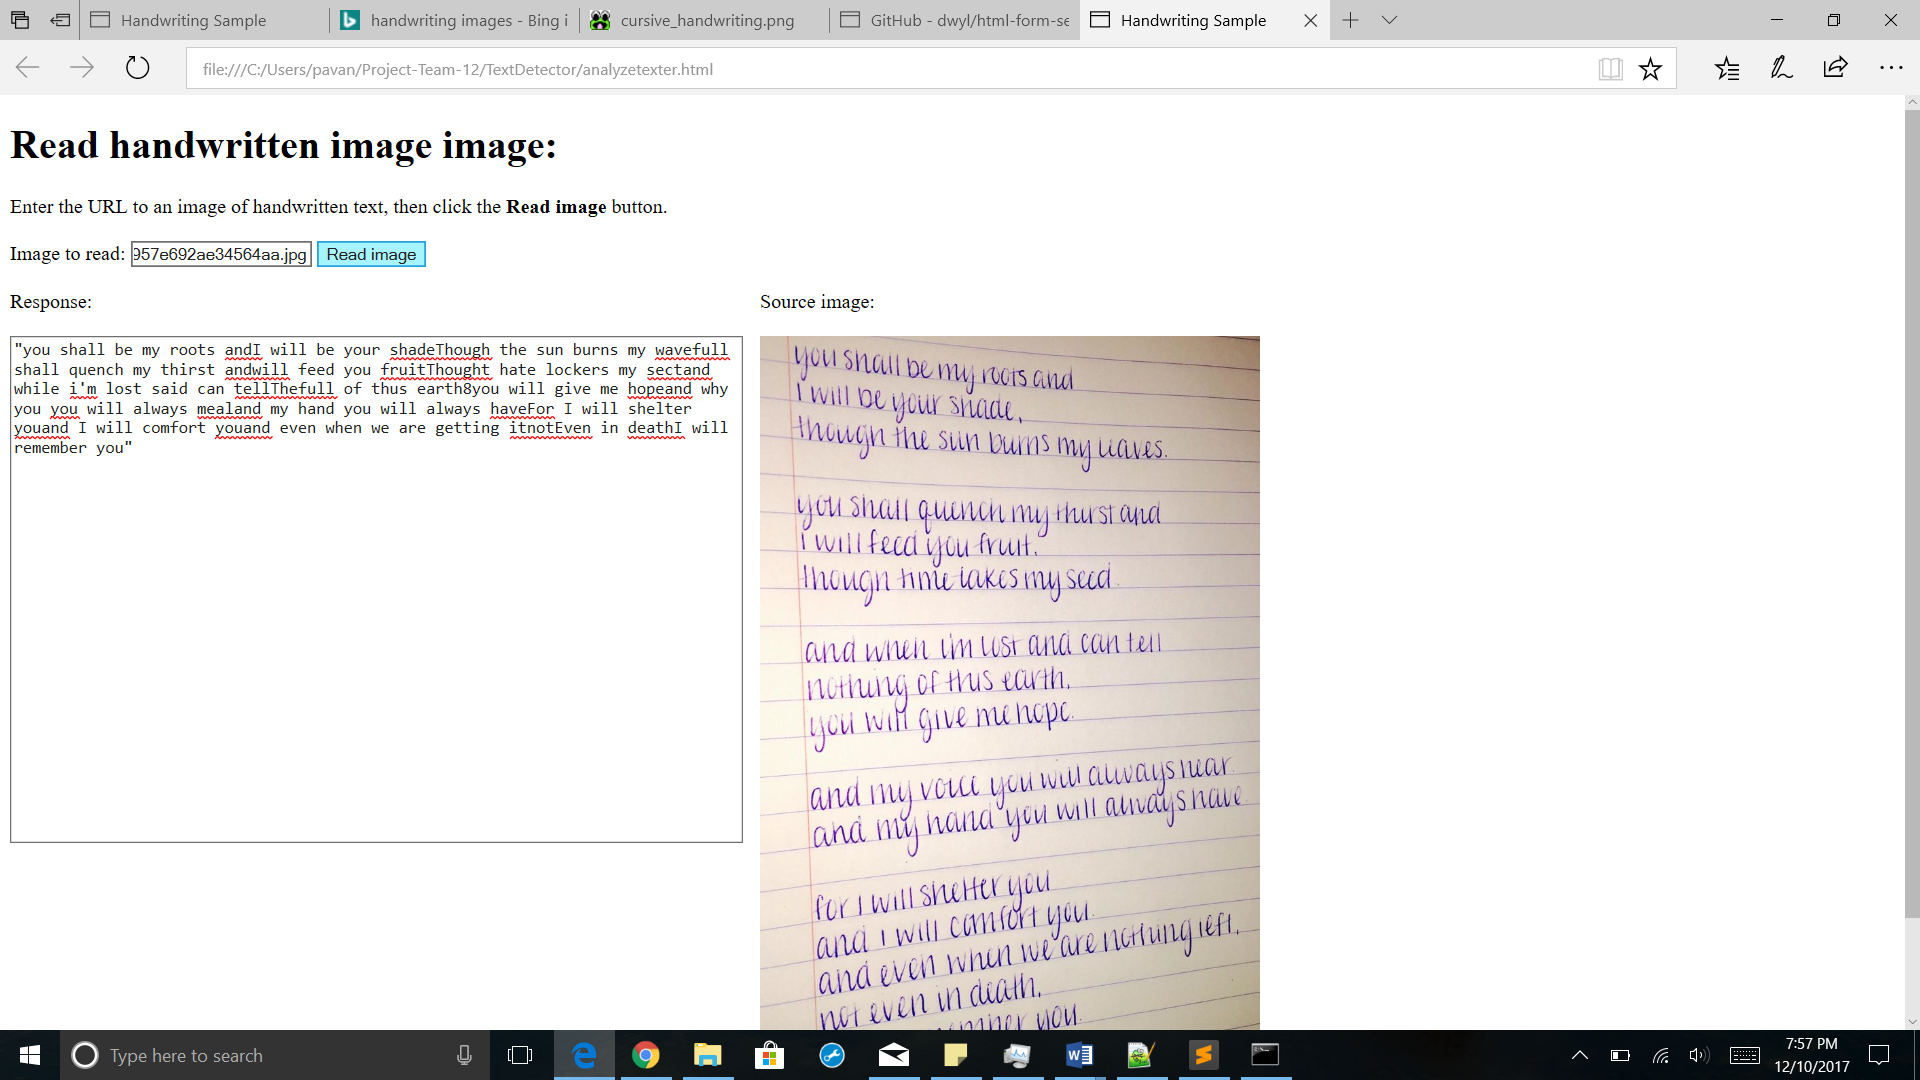 Handwriting Sample
handwriting images - Bing i
cursive_handwriting.png
GitHub - dwyl/html-form-se
Handwriting Sample
file:///C:/Users/pavan/Project-Team-12/TextDetector/analyzetexter.html
Read handwritten image image:
Enter the URL to an image of handwritten text, then click the Read image button.
Image to read: 957e692ae34564aa.jpg Read image
Response:
"you shall be my roots andI will be your shadeThough the sun burns my wavefull
shall quench my thirst andwill feed you fruitThought hate lockers my sectand
while i'm lost said can tellThefull of thus earth8you will give me hopeand why
you you will always mealand my hand you will always haveFor I will shelter
youand I will comfort youand even when we are getting itnotEven in deathI will
remember you"
Source image:
you shall be my roots and
I will be your shade,
though the sun burns my leaves.
you shall quench my thirst and
I will feed you fruit,
though time takes my seed.
and when i'm lost and can tell
nothing of this earth,
you will give me hope.
and my voice you will always hear.
and my hand you will always have.
for I will shelter you
and I will comfort you.
and even when we are nothing left,
not even in death,
remember you.
Type here to search
7:57 PM
12/10/2017